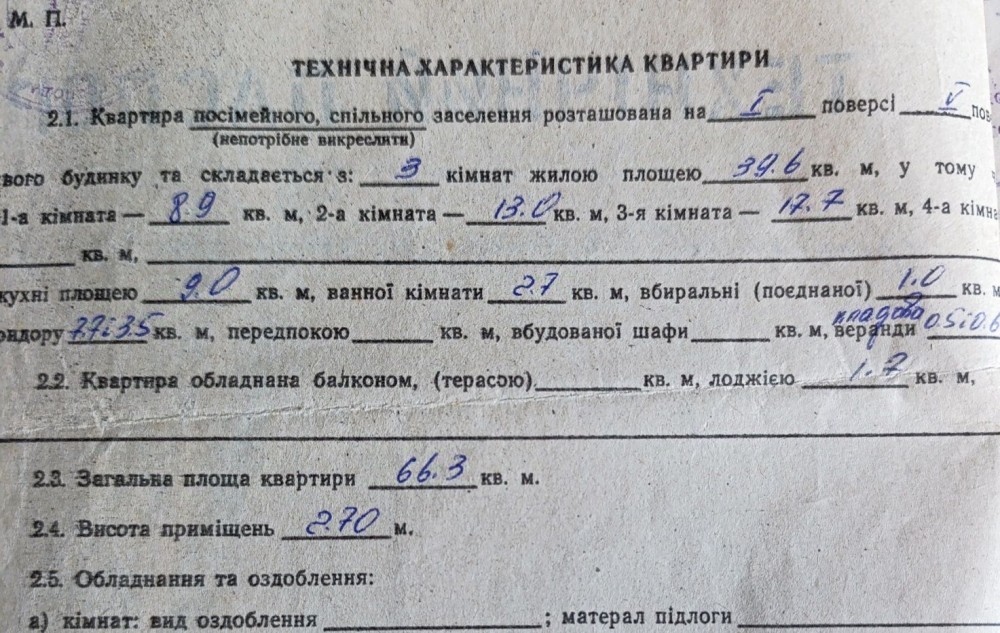 М. П.
ТЕХНІЧНА ХАРАКТЕРИСТИКА КВАРТИРИ
2.1. Квартира посімейного, спільного заселення розташована на I поверсі V пов
(непотрібне викреслити)
вого будинку та складається з: 3 кімнат жилою площею 39.6 кв. м, у тому
1-а кімната — 8.9 кв. м, 2-а кімната — 13.0 кв. м, 3-я кімната — 17.7 кв. м, 4-а кімна
кв. м,
кухні площею 9.0 кв. м, ванної кімнати 2.7 кв. м, вбиральні (поєднаної) 1.0 кв. м
кладова
ридору 7.7 і 3.5 кв. м, передпокою кв. м, вбудованої шафи кв. м, веранди 0.5 і 0.6
2.2. Квартира обладнана балконом, (терасою) кв. м, лоджією 1.7 кв. м,
2.3. Загальна площа квартири 66.3 кв. м.
2.4. Висота приміщень 2.70 м.
2.5. Обладнання та оздоблення:
а) кімнат: вид оздоблення ; матерал підлоги